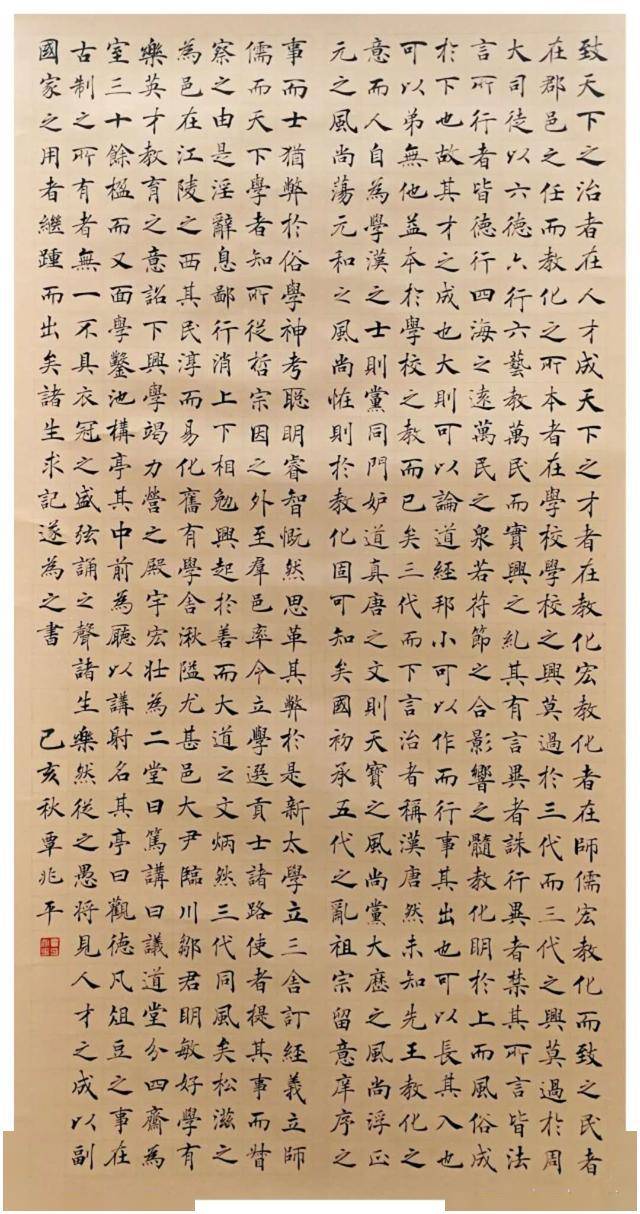 致天下之治者在人才成天下之才者在教化宏教化者在師儒宏教化而致之民者
在郡邑之任而教化之所本者在學校學校之興莫過於三代而三代之興莫過於周
大司徒以六德六行六藝教萬民而實興之糺其有言異者誅行異者禁其所言皆法
言所行者皆德行四海之遠萬民之衆若符節之合影響之髓教化明於上而風俗成
於下也故其才之成也大則可以論道經邦小可以作而行事其出也可以長其入也
可以弟無他益本於學校之教而已矣三代而下言治者稱漢唐然未知先王教化之
意而人自為學漢之士則黨同門妒道真唐之文則天寶之風尚黨大歷之風尚浮正
元之風尚蕩元和之風尚恠則於教化固可知矣國初承五代之亂祖宗留意庠序之
事而士猶弊於俗學神考聰明睿智慨然思革其弊於是新太學立三舍訂經義立師
儒而天下學者知所從哲宗因之外至羣邑率令立學選貢士諸路使者提其事而督
察之由是淫辭息鄙行消上下相勉興起於善而大道之文炳然三代同風矣松滋之
為邑在江陵之西其民淳而易化舊有學舍湫隘尤甚邑大尹臨川鄒君明敏好學有
樂英才教育之意詔下興學竭力營之殿宇宏壯為二堂曰篤講曰議道堂分四齋為
室三十餘楹而又面學鑿池構亭其中前為廳以講射名其亭曰觀德凡俎豆之事在
古制之所有者無一不具衣冠之盛弦誦之聲諸生樂然從之愚將見人才之成以副
國家之用者繼踵而出矣諸生求記遂為之書 己亥秋覃兆平